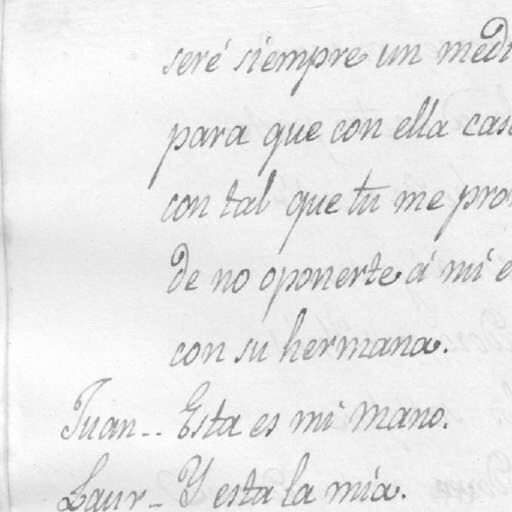 seré siempre un medi
para que con ella cas
con tal que tu me pro
de no oponerte á mi e
con su hermana.
Juan-- Esta es mi mano.
Laur- Y esta la mia.